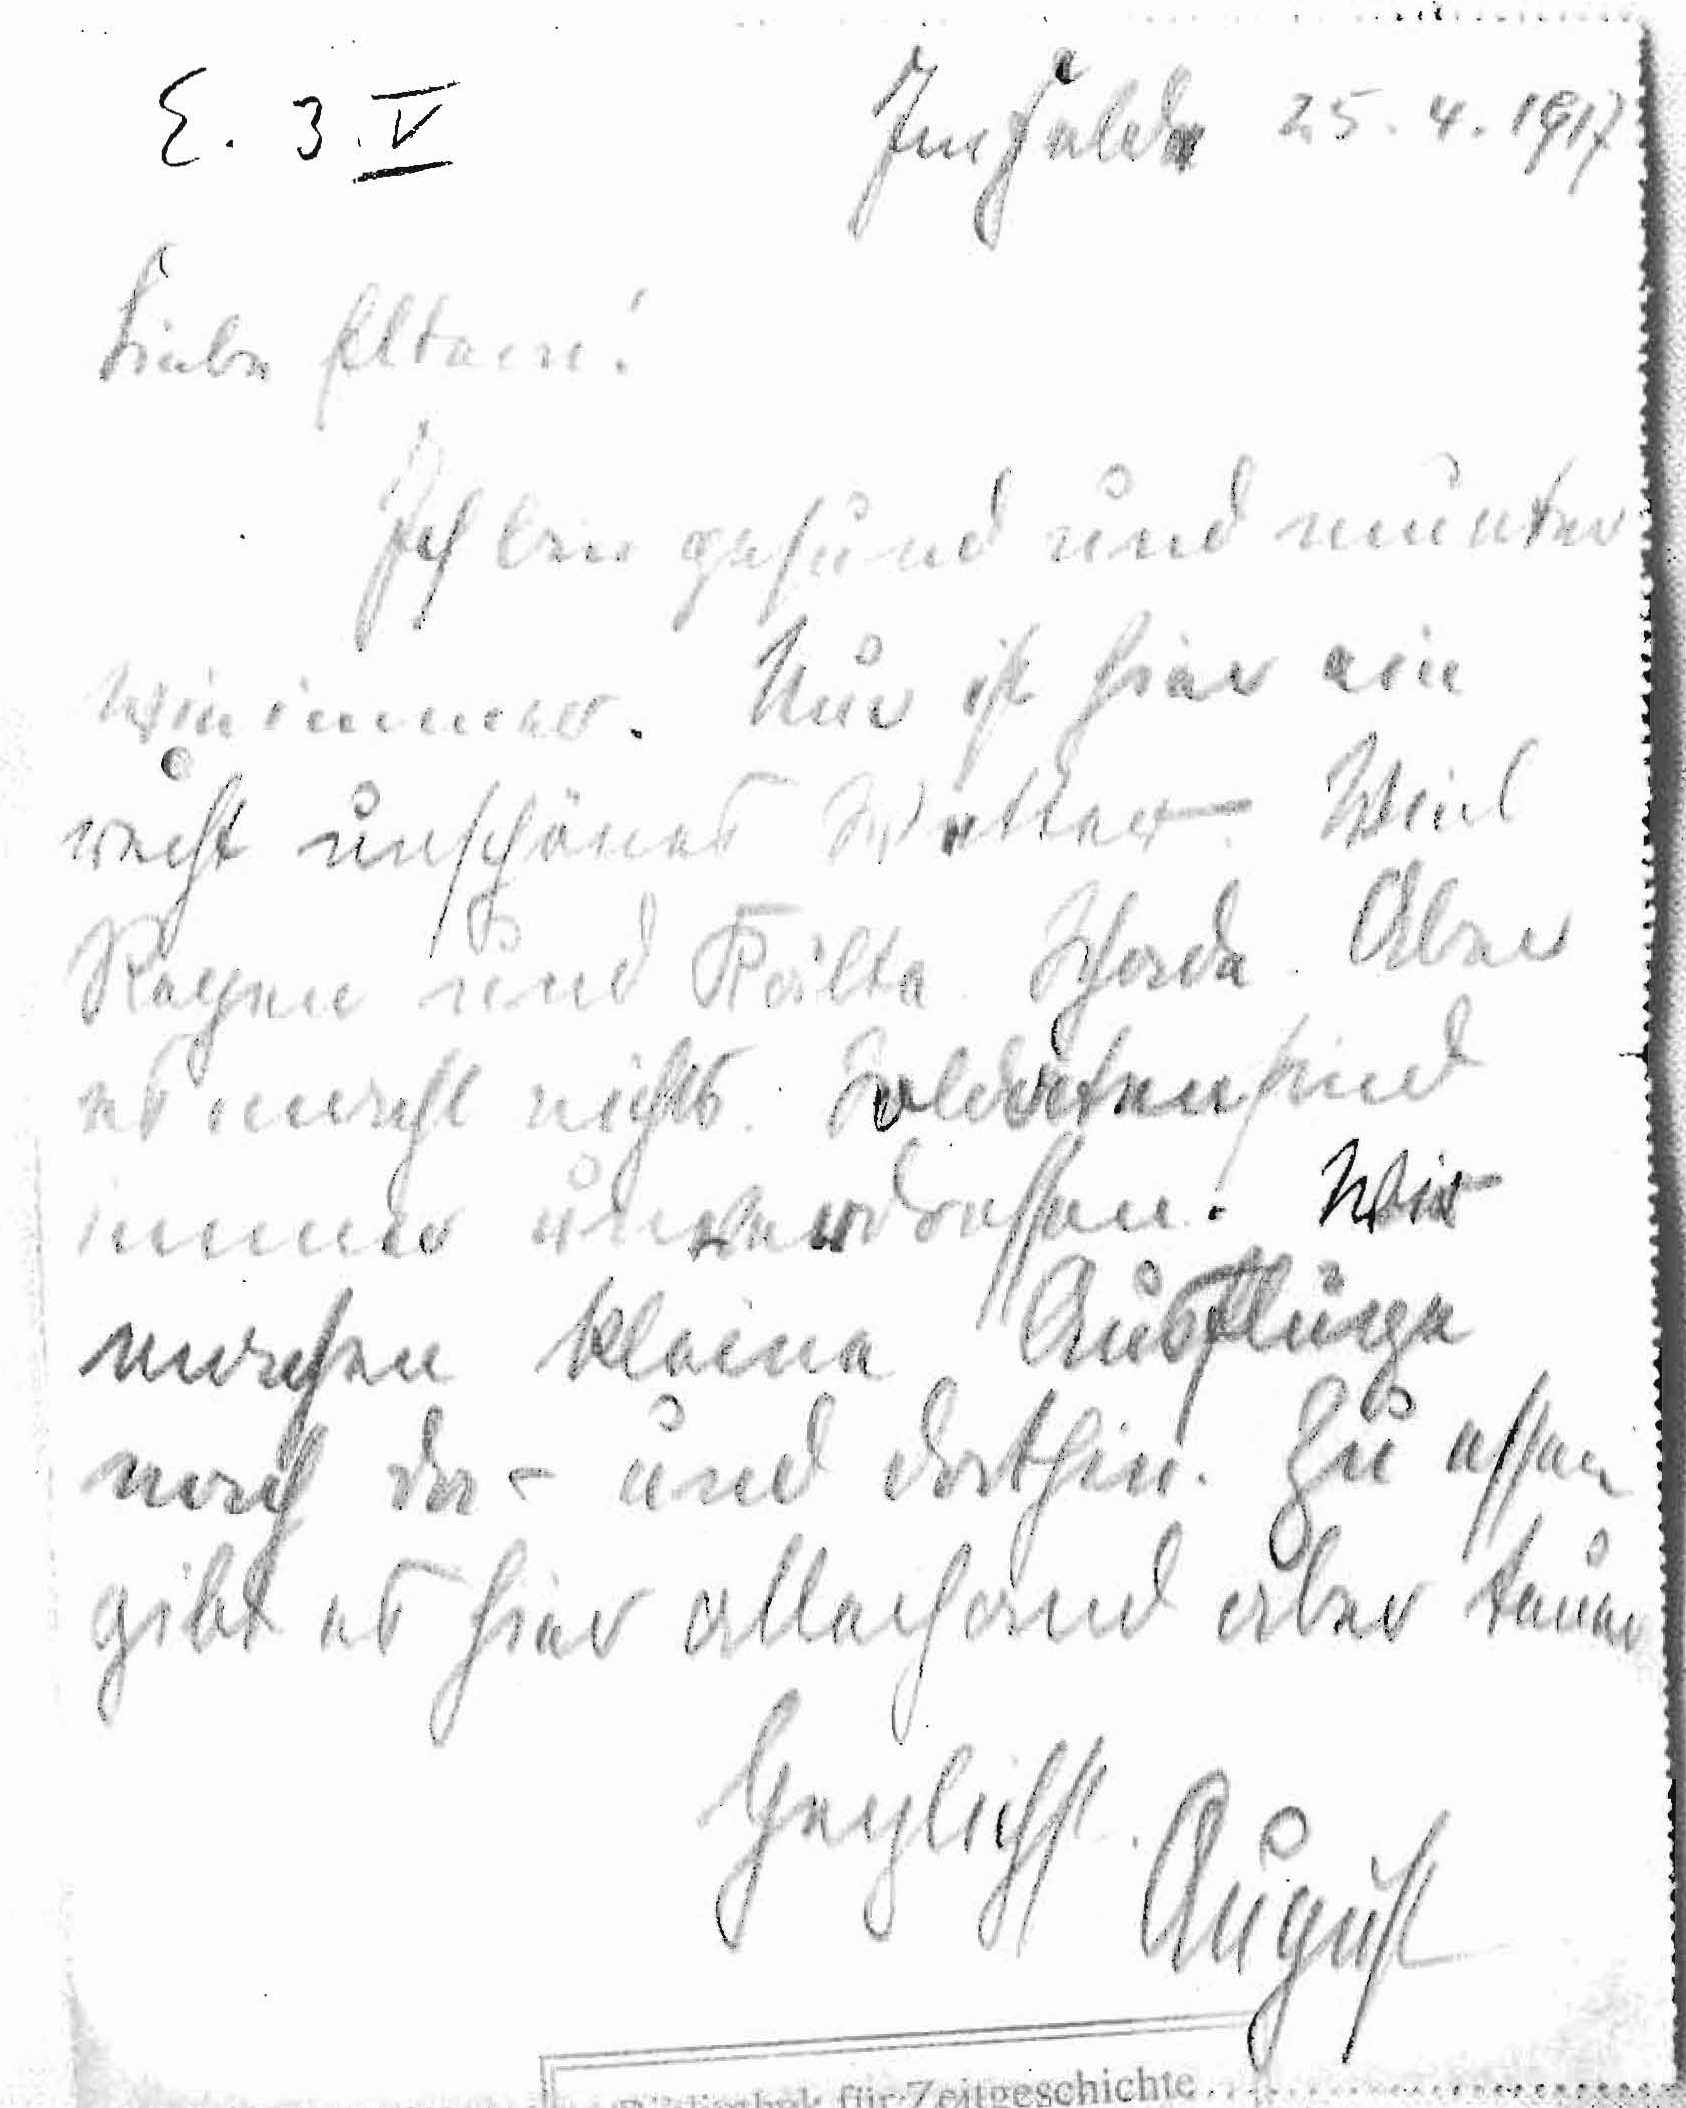 E. 3. V
Im Felde 25. 4. 1917
Liebe Eltern!
Ich bin gesund und munter
wie immer. Nur ist hier ein
recht unschönes Wetter. Viel
Regen und Kälte. Schade. Aber
es macht nichts. Soldaten sind
immer unverdrossen. Wir
machen kleine Ausflüge
nach da- und dorthin. Zu essen
gibt es hier allerhand aber teuer
Herzlichst
August
Bibliothek für Zeitgeschichte